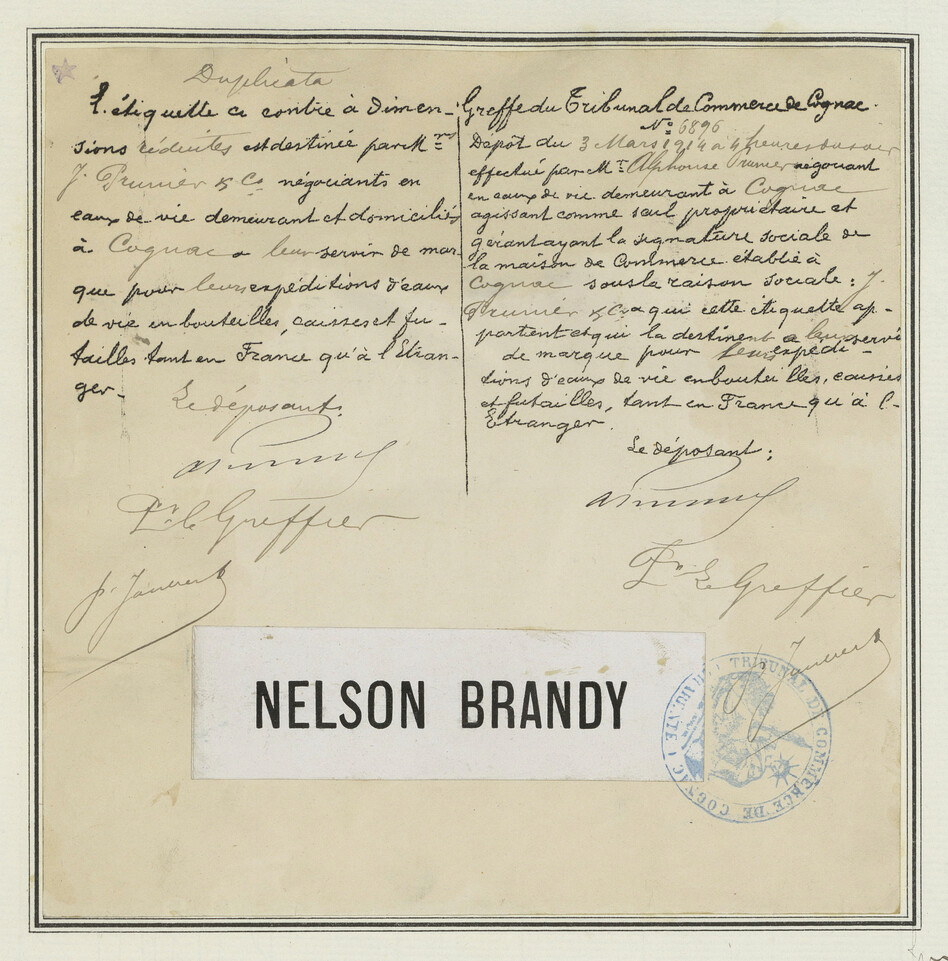 Duplicata
L'étiquette ci contre à Dimen-
sions réduites est destinée par Mrs
J. Prunier & Co négociants en
eaux de vie demeurant et domiciliés
à Cognac a leur servir de mar-
que pour leurs expéditions d'eaux
de vie en bouteilles, caisses et fu-
tailles tant en France qu'à l'Etran-
ger.
Le déposant.
Pr le Greffier
Greffe du Tribunal de Commerce de Cognac.
No 6896
Dépôt du 3 Mars 1914 a 4 heures du soir
effectué par Mr Alphonse Prunier négociant
en eaux de vie demeurant à Cognac
agissant comme seul propriétaire et
gérant ayant la signature sociale de
la maison de Commerce établie à
Cognac sous la raison sociale: J.
Prunier & Co a qui cette étiquette ap-
partient et qui la destinent a leur servi
de marque pour leurs expédi-
tions d'eaux de vie en bouteilles, caisses
et futailles, tant en France qu'à l'-
Etranger.
Le déposant;
Pr Le Greffier
NELSON BRANDY
TRIBUNAL DE COMMERCE DE COGNAC